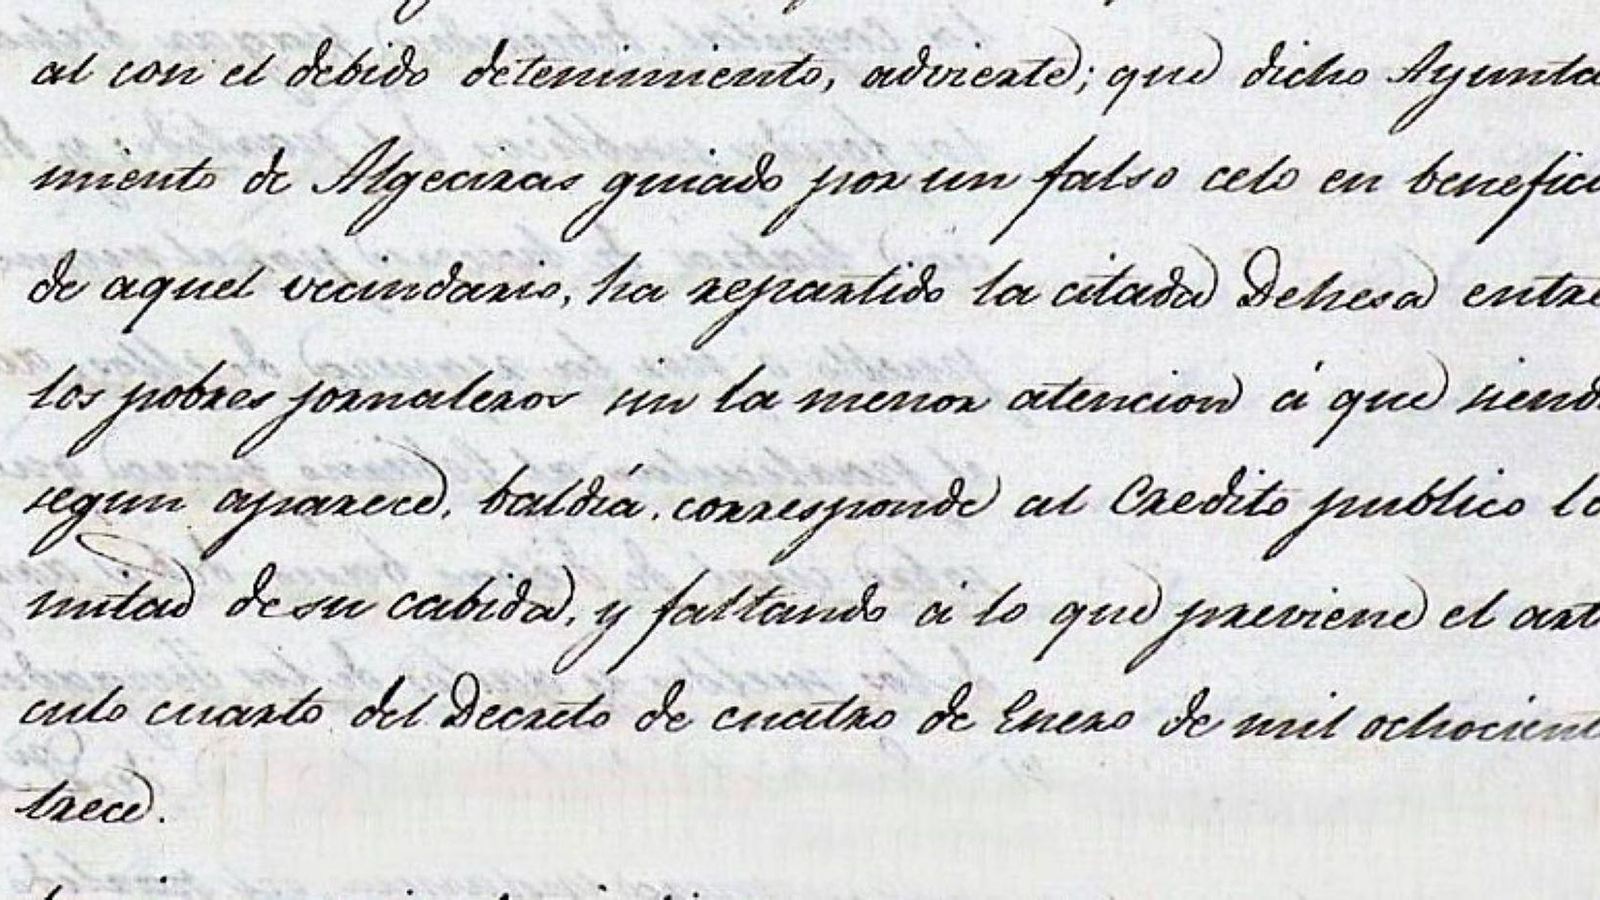 al con el debido detenimiento, advierte; que dicho Ayunta
miento de Algeciras guiado por un falso celo en benefici
de aquel vecindario, ha repartido la citada Dehesa entre
los pobres jornaleros sin la menor atencion á que siend
segun aparece, baldía, corresponde al Credito publico la
mitad de su cabida, y faltando á lo que previene el artí
culo cuarto del Decreto de cuatro de Enero de mil ochocient
trece.